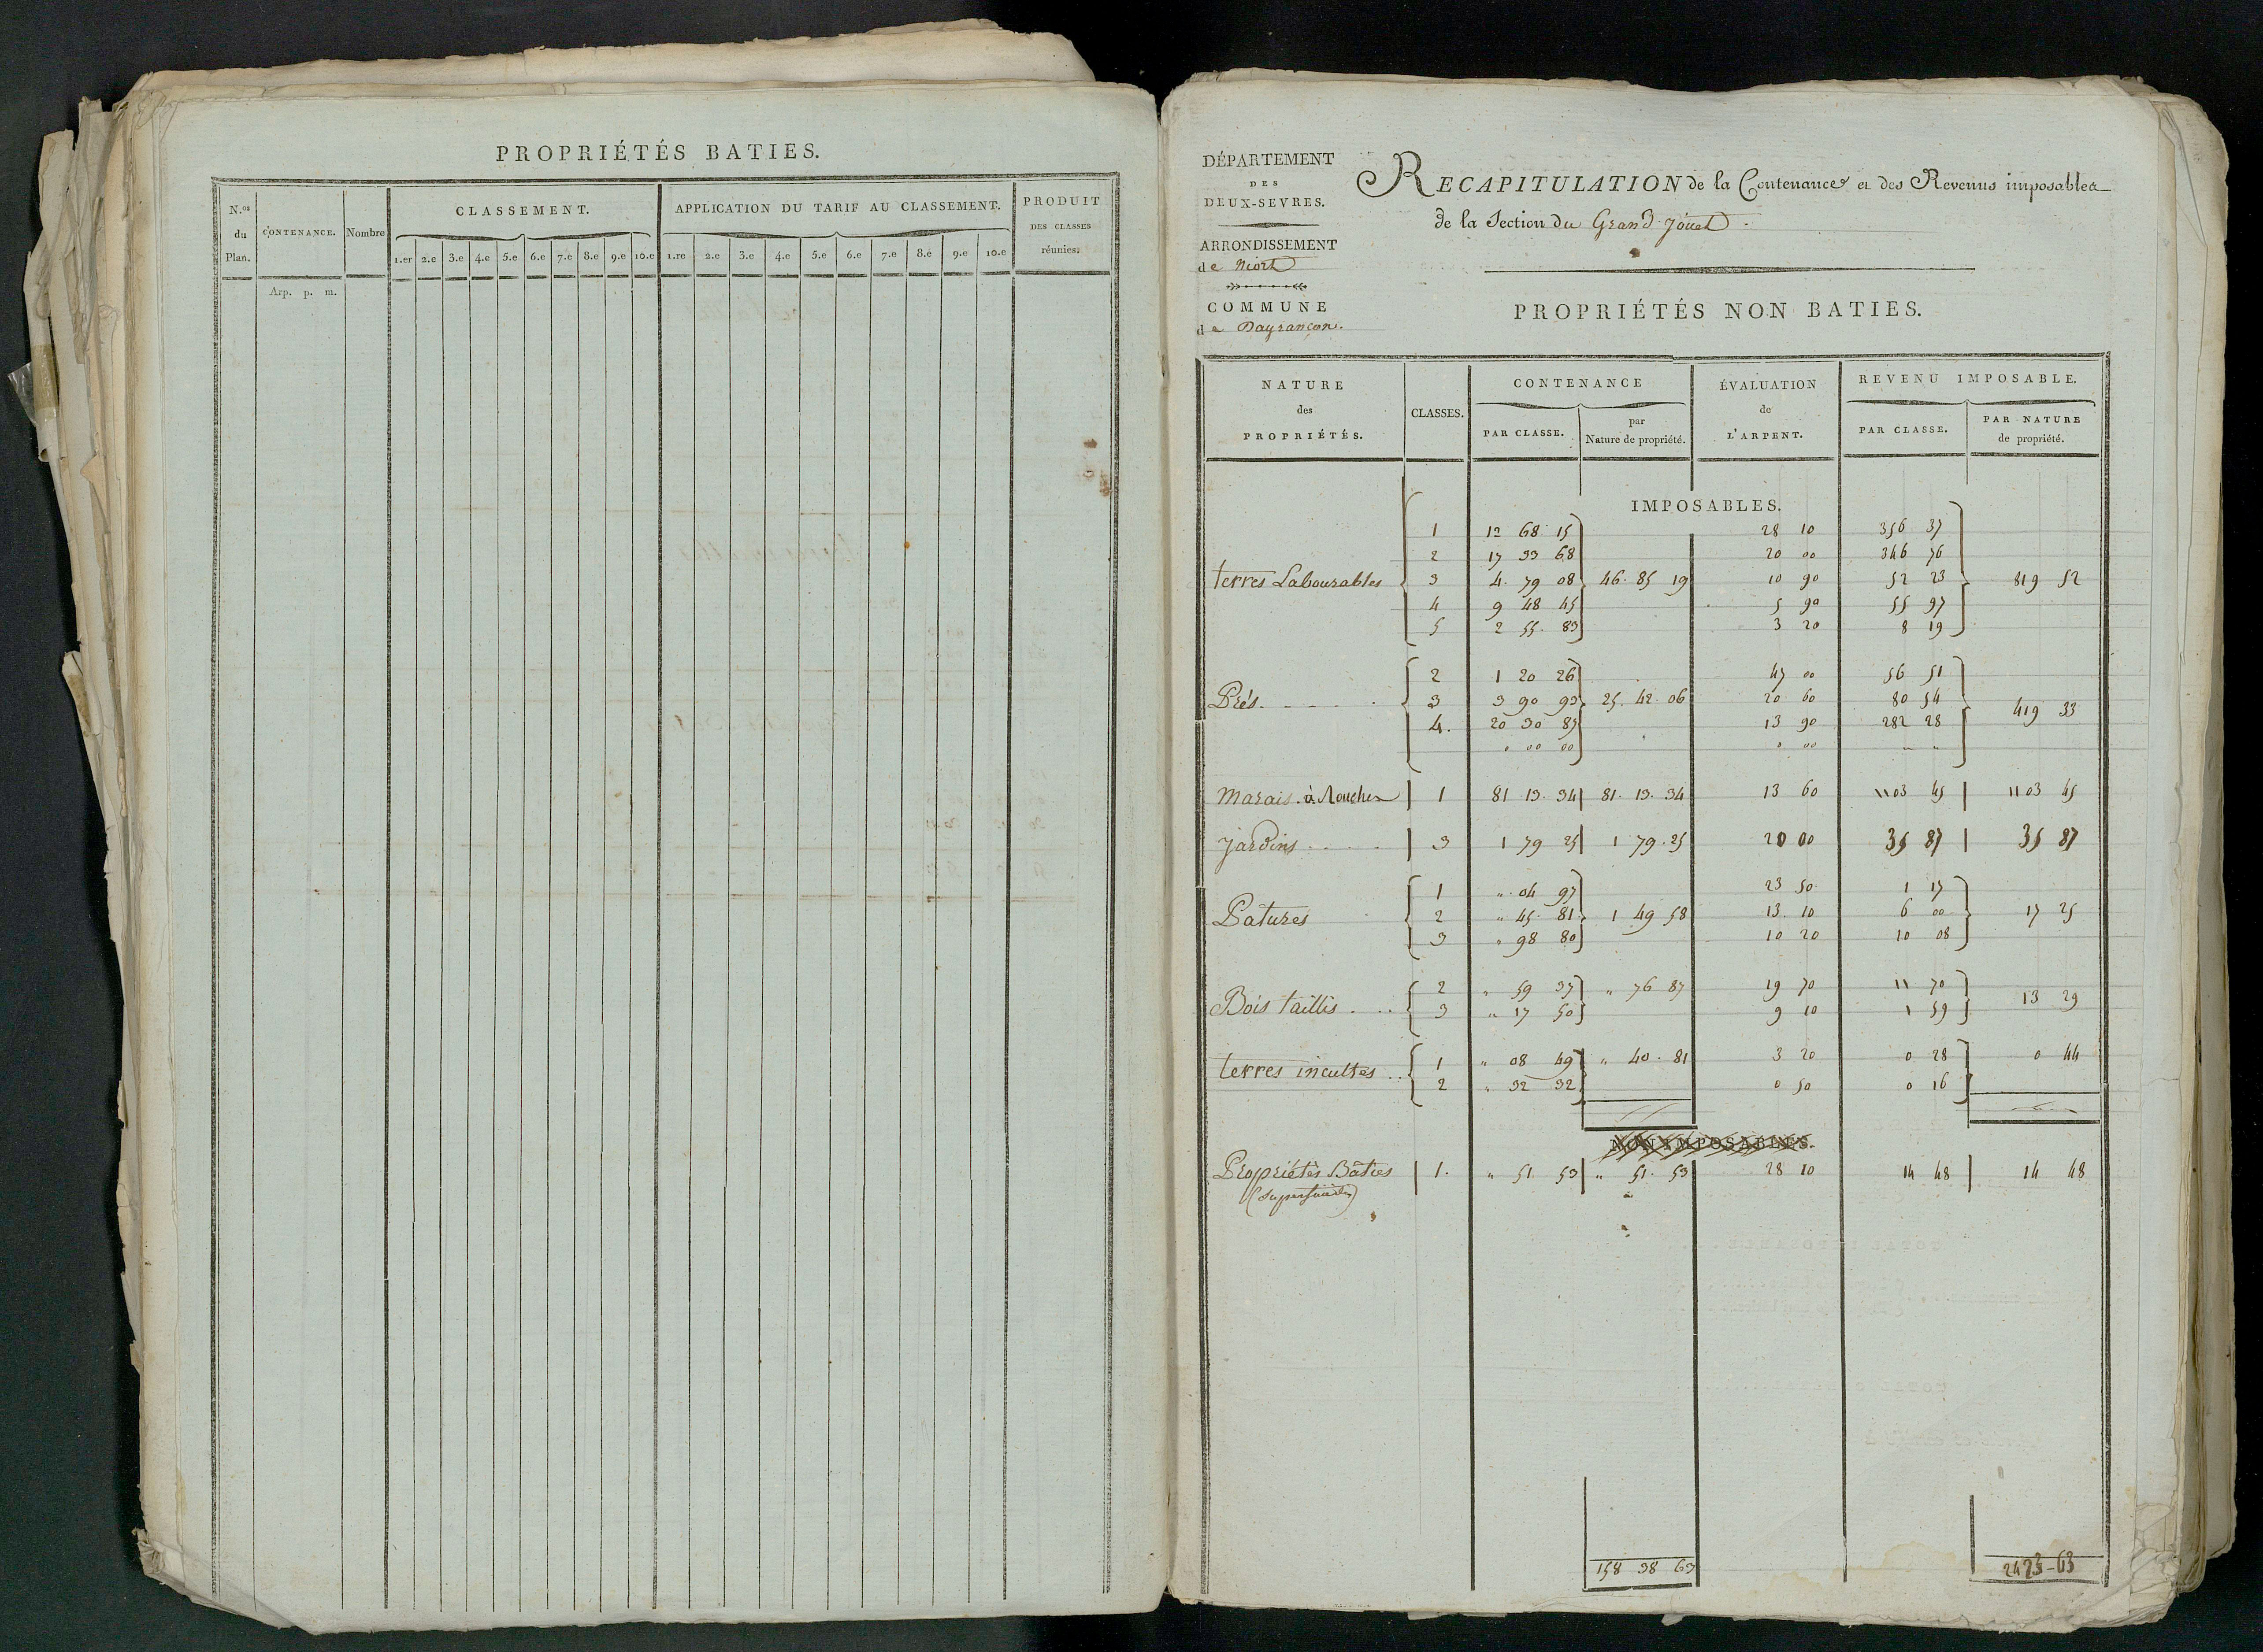 PROPRIÉTÉS BATIES.
N.os du Plan. CONTENANCE. Nombre CLASSEMENT. APPLICATION DU TARIF AU CLASSEMENT. PRODUIT DES CLASSES réunies.
1.er 2.e 3.e 4.e 5.e 6.e 7.e 8.e 9.e 10.e 1.re 2.e 3.e 4.e 5.e 6.e 7.e 8.e 9.e 10.e
Arp. p. m.
DÉPARTEMENT
DES
DEUX-SEVRES.
ARRONDISSEMENT
de Niort
COMMUNE
de Payrançon.
RECAPITULATION de la Contenance et des Revenus imposables
de la Section du Grand Jouet
PROPRIÉTÉS NON BATIES.
NATURE des PROPRIÉTÉS. CLASSES. CONTENANCE ÉVALUATION de L'ARPENT. REVENU IMPOSABLE.
PAR CLASSE. par Nature de propriété. PAR CLASSE. PAR NATURE de propriété.
IMPOSABLES.
1 12 68 15 28 10 356 37
2 17 33 68 20 00 346 76
terres Labourables 3 4. 79 08 46. 85 19 10 90 52 23 819 52
4 9 48 45 5 90 55 97
5 2 55. 83 3 20 8 19
2 1 20 26 47 00 56 51
Prés. 3 3 90 93 25. 42. 06 20 60 80 54 419 33
4. 20 30 87 13 90 282 28
" 00 00 " 00 " "
Marais à Rouches 1 81 13. 34 81. 13. 34 13 60 1103 45 1103 45
Jardins 3 1 79 25 1 79. 25 20 00 35 87 35 87
1 ". 04 97 23 50 1 17
Pâtures 2 " 45. 81 1 49 58 13. 10 6 00 17 25
3 " 98 80 10 20 10 08
2 " 59 37 " 76 87 19 70 11 70
Bois taillis 3 " 17 50 9 10 1 59 13 29
1 " 08 49 " 40. 81 3 20 0 28 0 44
terres incultes 2 " 32 32 0 50 0 16
NON IMPOSABLES.
Propriétés Bâties 1. " 51 53 " 51. 53 28 10 14 48 14 48
(Superficie)
158 38 63 2423-63